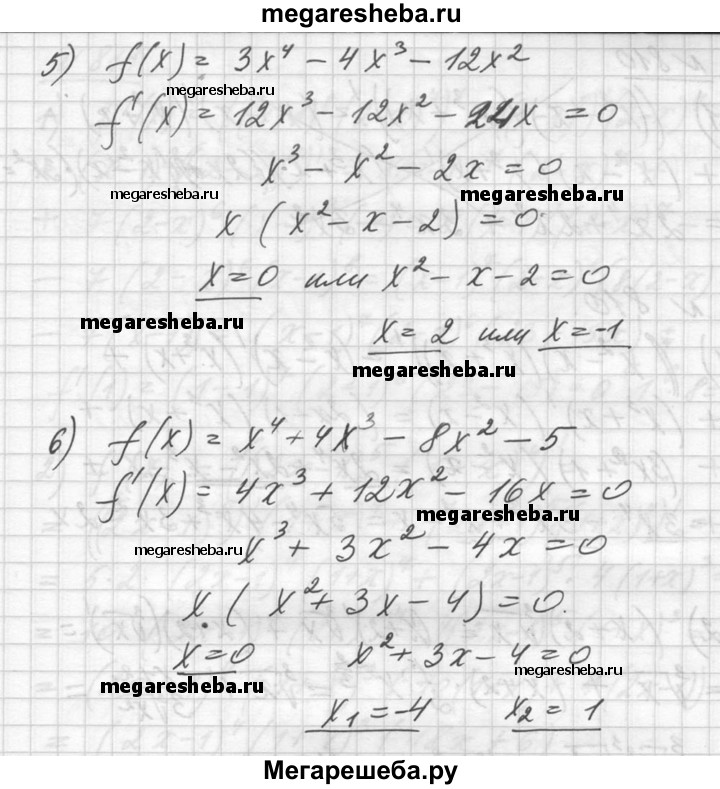 megaresheba.ru
5) f(x) = 3x⁴ - 4x³ - 12x²
megaresheba.ru
f'(x) = 12x³ - 12x² - 24x = 0
x³ - x² - 2x = 0
megaresheba.ru megaresheba.ru
x (x² - x - 2) = 0
x = 0 или x² - x - 2 = 0
megaresheba.ru
x = 2 или x = -1
megaresheba.ru
6) f(x) = x⁴ + 4x³ - 8x² - 5
f'(x) = 4x³ + 12x² - 16x = 0
megaresheba.ru
megaresheba.ru x³ + 3x² - 4x = 0
x. (x² + 3x - 4) = 0.
x = 0 x² + 3x - 4 = 0
megaresheba.ru
megaresheba.ru
x₁ = -4 x₂ = 1
Мегарешеба.ру